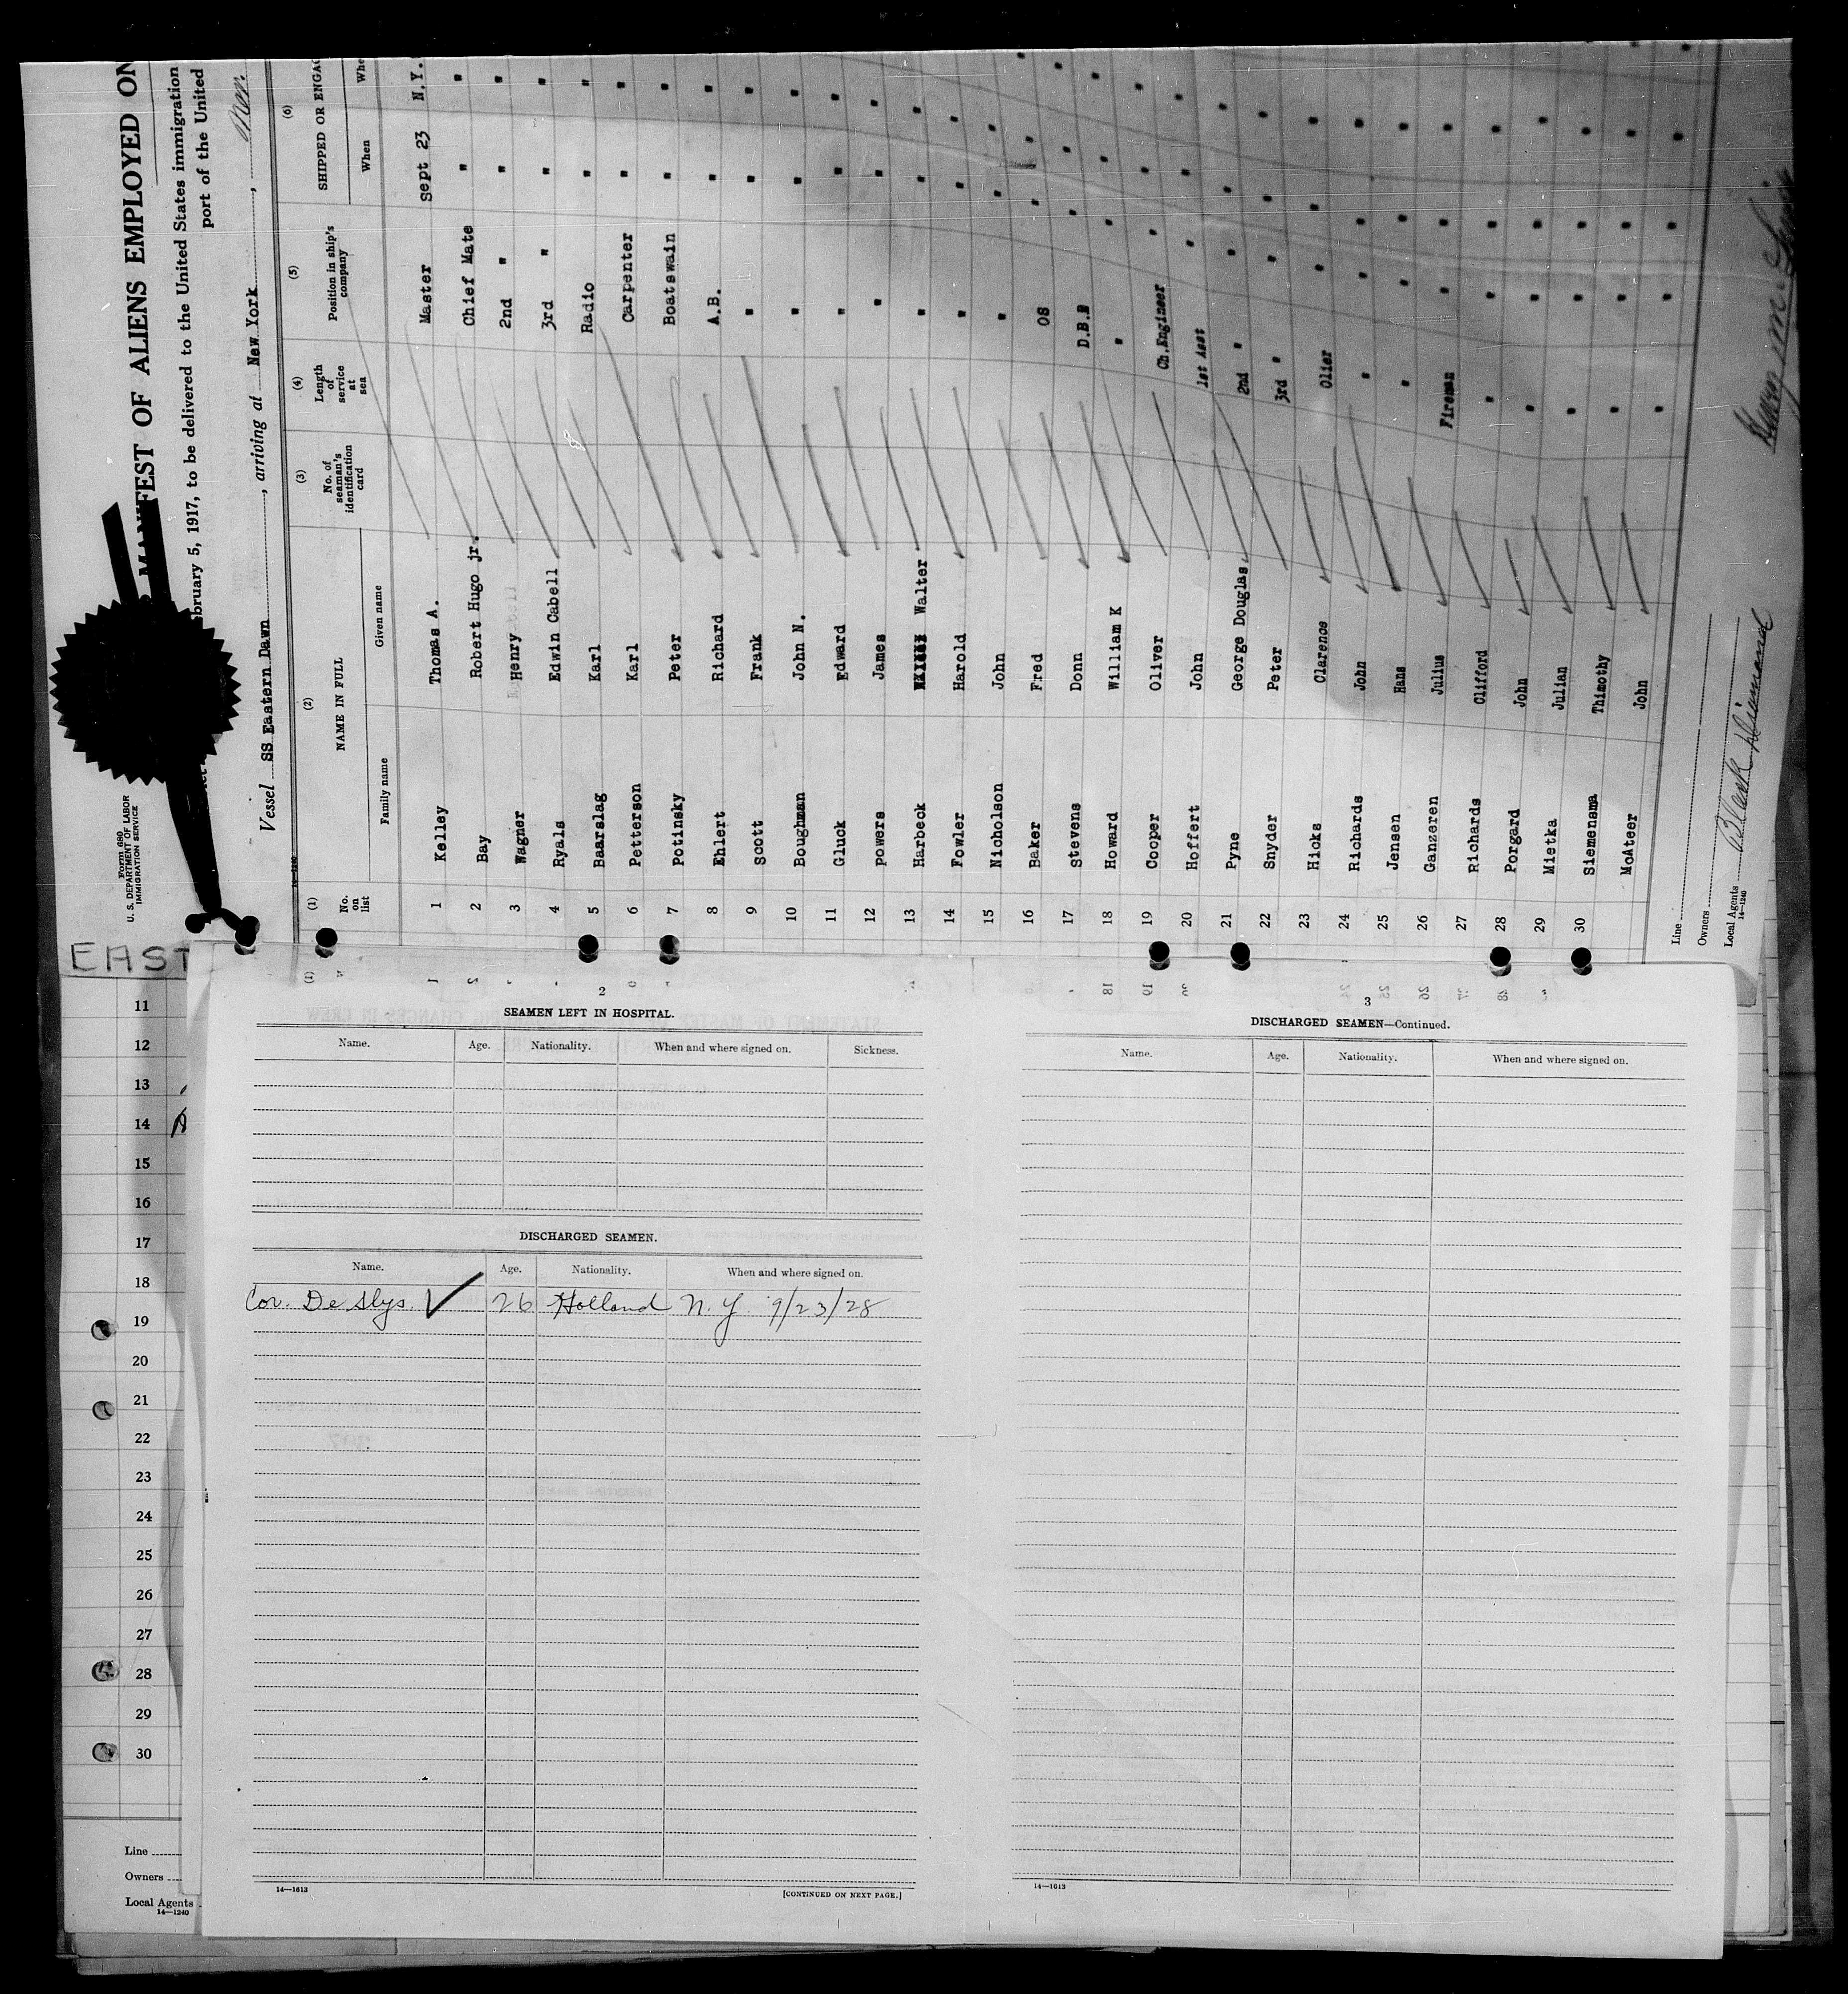 Form 680
U. S. DEPARTMENT OF LABOR
IMMIGRATION SERVICE
MANIFEST OF ALIENS EMPLOYED ON
February 5, 1917, to be delivered to the United States immigration
port of the United
Vessel SS Eastern Dawn, arriving at New York,
14—1240
(1) (2) (3) (4) (5) (6)
No. on list NAME IN FULL No. of seaman's identification card Length of service at sea Position in ship's company SHIPPED OR ENGAG
Family name Given name When Whe
1 Kelley Thomas A. Master Sept 23 N.Y.
2 Bay Robert Hugo jr. Chief Mate " "
3 Wagner Henry 2nd " " "
4 Ryals Edwin Cabell 3rd " " "
5 Baarslag Karl Radio " "
6 Petterson Karl Carpenter " "
7 Potinsky Peter Boatswain " "
8 Ehlert Richard A.B. " "
9 Scott Frank " " "
10 Boughman John N. " " "
11 Gluck Edward " " "
12 powers James " " "
13 Harbeck Walter " " "
14 Fowler Harold " " "
15 Nicholson John " " "
16 Baker Fred OS " "
17 Stevens Donn D.B. " "
18 Howard William K " " "
19 Cooper Oliver Ch.Engineer " "
20 Hoffert John 1st Asst " "
21 Pyne George Douglas 2nd " " "
22 Snyder Peter 3rd " " "
23 Hicks Clarence Olier " "
24 Richards John " " "
25 Jensen Hans " " "
26 Ganzeren Julius Fireman " "
27 Richards Clifford " " "
28 Porgard John " " "
29 Mietka Julian " " "
30 Siemensma Thimothy " " "
McAteer John " " "
Line
Owners
Local Agents
14—1240
EAST
11
12
13
14
15
16
17
18
19
20
21
22
23
24
25
26
27
28
29
30
Line
Owners
Local Agents
14—1240
2
SEAMEN LEFT IN HOSPITAL.
Name. Age. Nationality. When and where signed on. Sickness.
DISCHARGED SEAMEN.
Name. Age. Nationality. When and where signed on.
Cor. De Slys 26 Holland N.Y 9/23/28
14—1613 [CONTINUED ON NEXT PAGE.]
3
DISCHARGED SEAMEN—Continued.
Name. Age. Nationality. When and where signed on.
14—1613